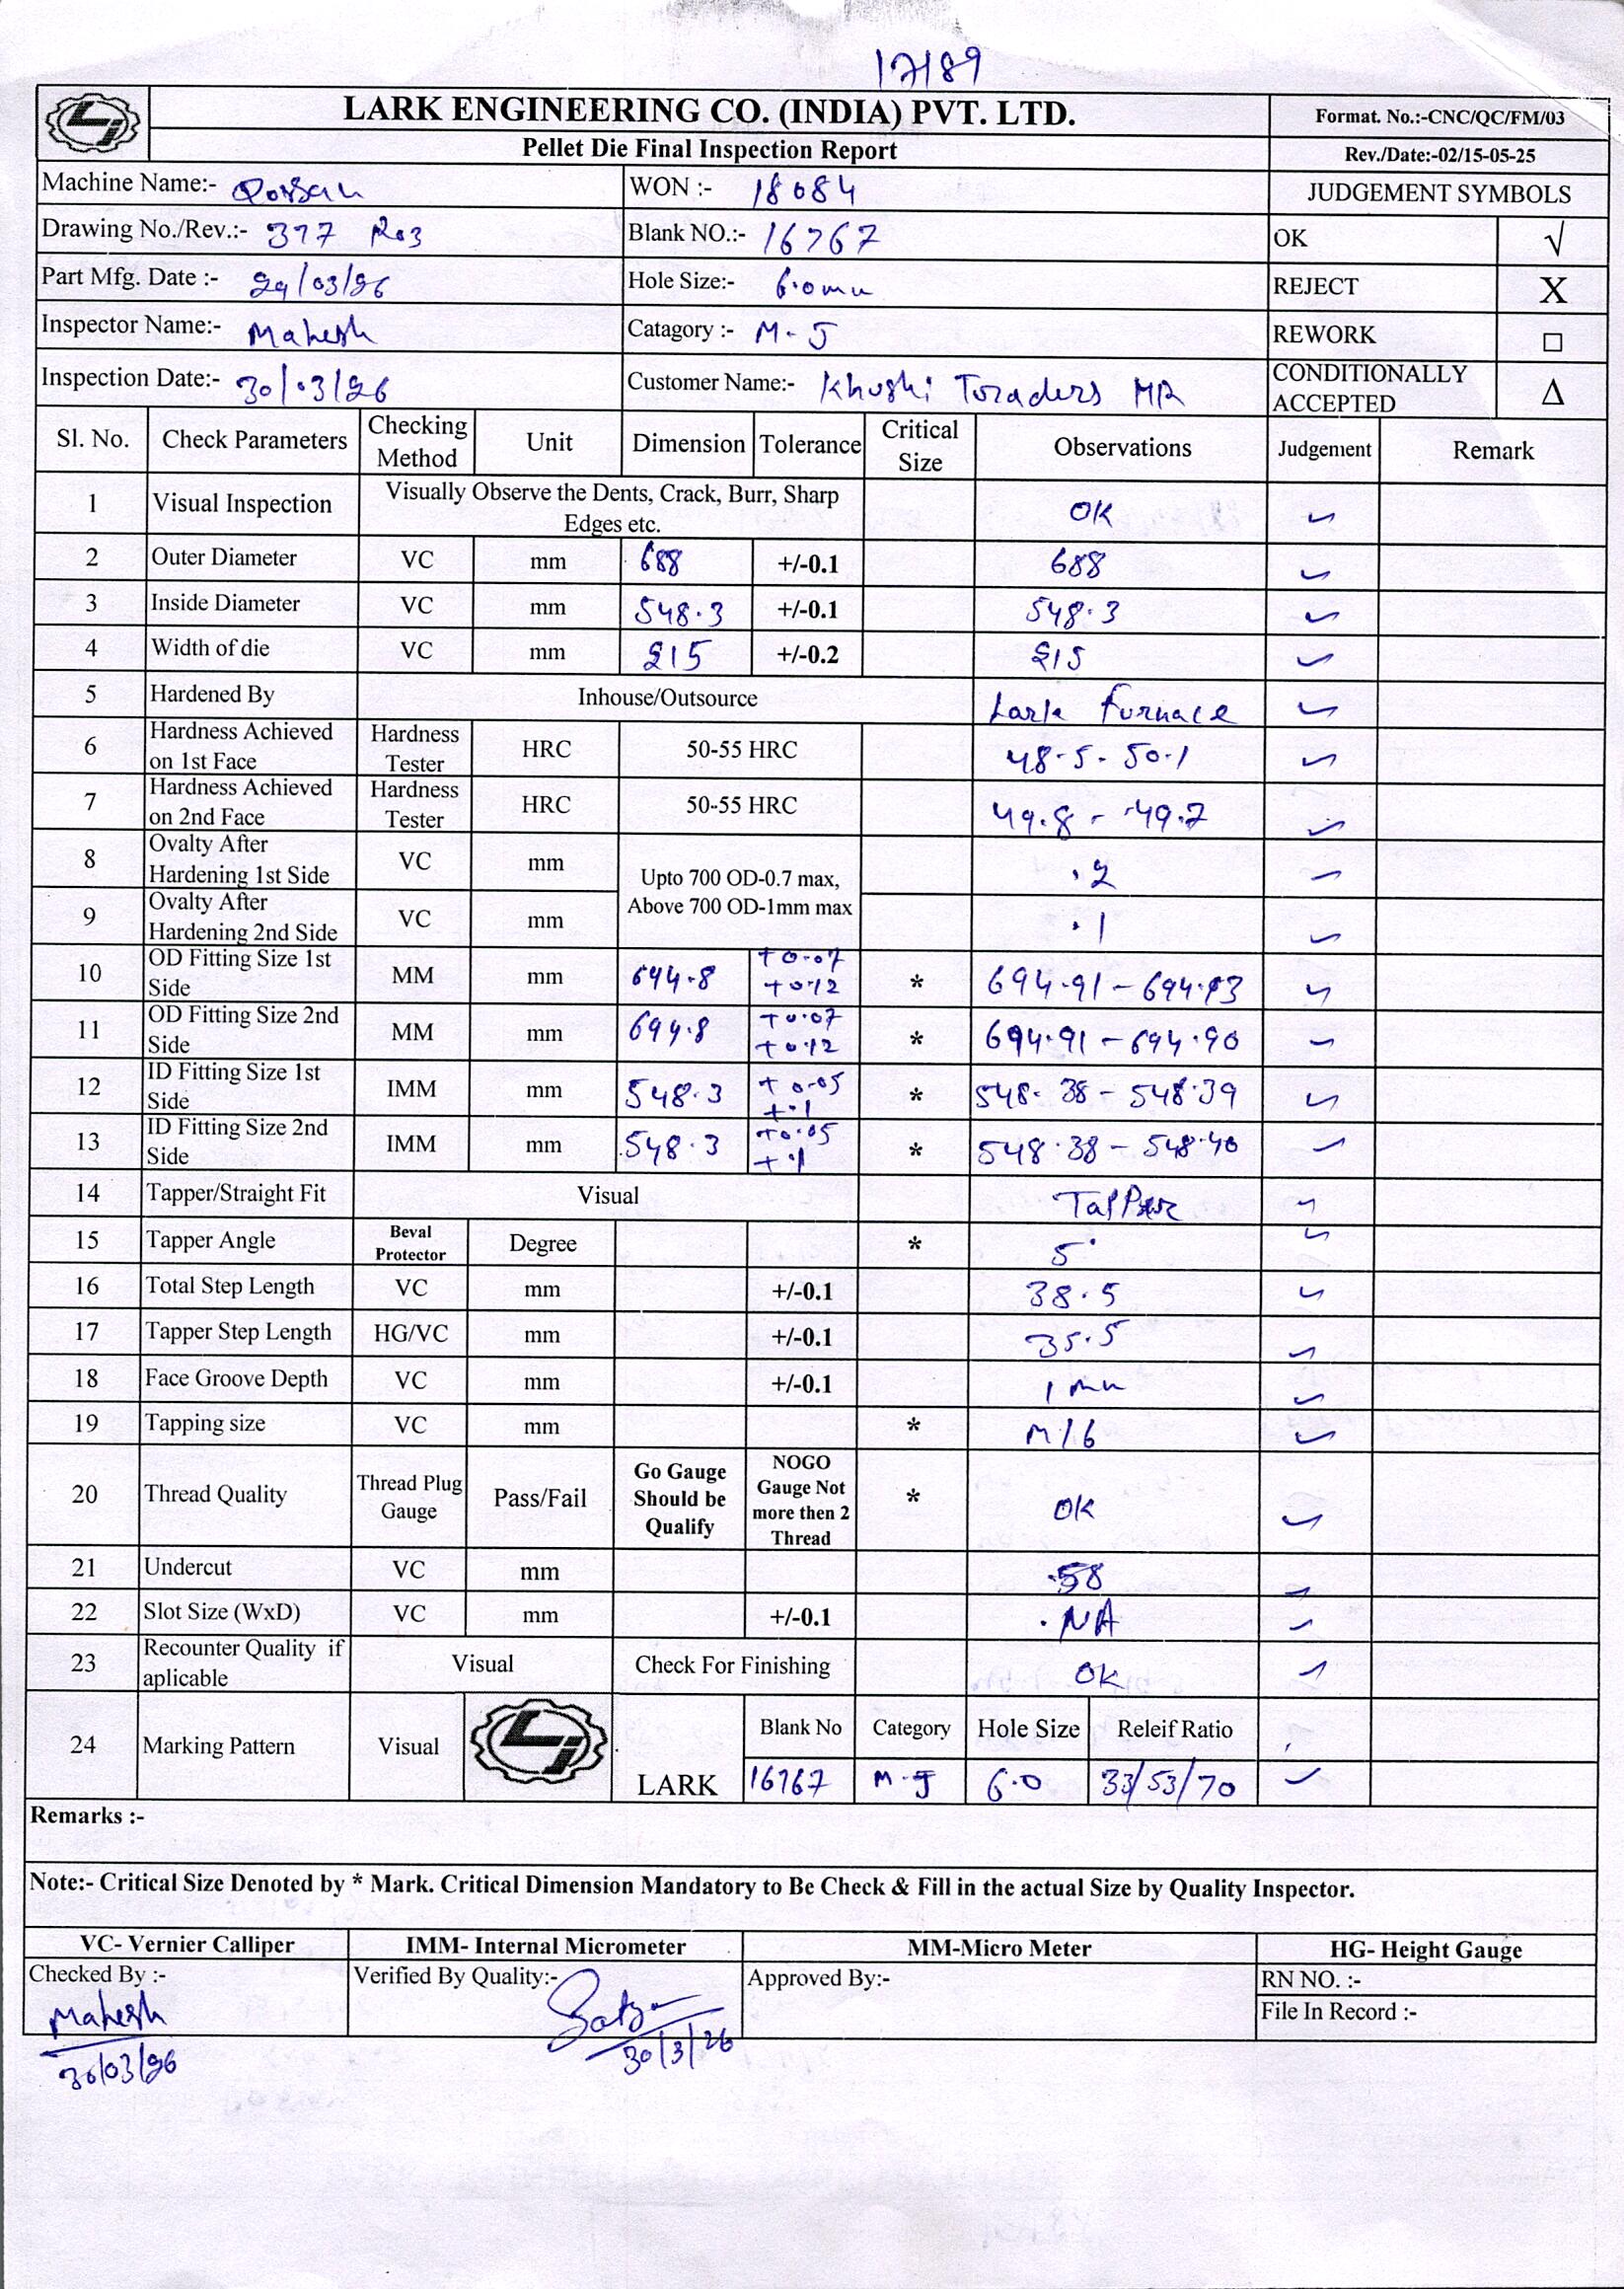 17189
LARK ENGINEERING CO. (INDIA) PVT. LTD.
Format. No.:-CNC/QC/FM/03
Pellet Die Final Inspection Report
Rev./Date:-02/15-05-25
Machine Name:-
WON :- 18084
JUDGEMENT SYMBOLS
Drawing No./Rev.:- 377 R03
Blank NO.:- 16767
OK √
Part Mfg. Date :- 29/03/26
Hole Size:- 6.0mm
REJECT X
Inspector Name:- Mahesh
Catagory :- M-J
REWORK □
Inspection Date:- 30/03/26
Customer Name:- Khushi Toraders MR
CONDITIONALLY ACCEPTED Δ
Sl. No. Check Parameters Checking Method Unit Dimension Tolerance Critical Size Observations Judgement Remark
1 Visual Inspection Visually Observe the Dents, Crack, Burr, Sharp Edges etc. OK ✓
2 Outer Diameter VC mm 688 +/-0.1 688 ✓
3 Inside Diameter VC mm 548.3 +/-0.1 548.3 ✓
4 Width of die VC mm 215 +/-0.2 215 ✓
5 Hardened By Inhouse/Outsource Lark Furnace ✓
6 Hardness Achieved on 1st Face Hardness Tester HRC 50-55 HRC 48.5 - 50.1 ✓
7 Hardness Achieved on 2nd Face Hardness Tester HRC 50-55 HRC 49.8 - 49.7 ✓
8 Ovalty After Hardening 1st Side VC mm Upto 700 OD-0.7 max, Above 700 OD-1mm max .2 ✓
9 Ovalty After Hardening 2nd Side VC mm .1 ✓
10 OD Fitting Size 1st Side MM mm 694.8 +0.07 +0.12 * 694.91 - 694.93 ✓
11 OD Fitting Size 2nd Side MM mm 694.8 +0.07 +0.12 * 694.91 - 694.90 ✓
12 ID Fitting Size 1st Side IMM mm 548.3 +0.05 +.1 * 548.38 - 548.39 ✓
13 ID Fitting Size 2nd Side IMM mm 548.3 +0.05 +.1 * 548.38 - 548.40 ✓
14 Tapper/Straight Fit Visual Tapper ✓
15 Tapper Angle Beval Protector Degree * 5° ✓
16 Total Step Length VC mm +/-0.1 38.5 ✓
17 Tapper Step Length HG/VC mm +/-0.1 35.5 ✓
18 Face Groove Depth VC mm +/-0.1 1 mm ✓
19 Tapping size VC mm * M16 ✓
20 Thread Quality Thread Plug Gauge Pass/Fail Go Gauge Should be Qualify NOGO Gauge Not more then 2 Thread * OK ✓
21 Undercut VC mm .58 ✓
22 Slot Size (WxD) VC mm +/-0.1 NA ✓
23 Recounter Quality if aplicable Visual Check For Finishing OK ✓
24 Marking Pattern Visual LARK Blank No Category Hole Size Releif Ratio
16767 M-J 6.0 33/53/70 ✓
Remarks :-
Note:- Critical Size Denoted by * Mark. Critical Dimension Mandatory to Be Check & Fill in the actual Size by Quality Inspector.
VC- Vernier Calliper IMM- Internal Micrometer MM-Micro Meter HG- Height Gauge
Checked By :- Verified By Quality:- Approved By:- RN NO. :-
Mahesh File In Record :-
30/03/26 30/3/26